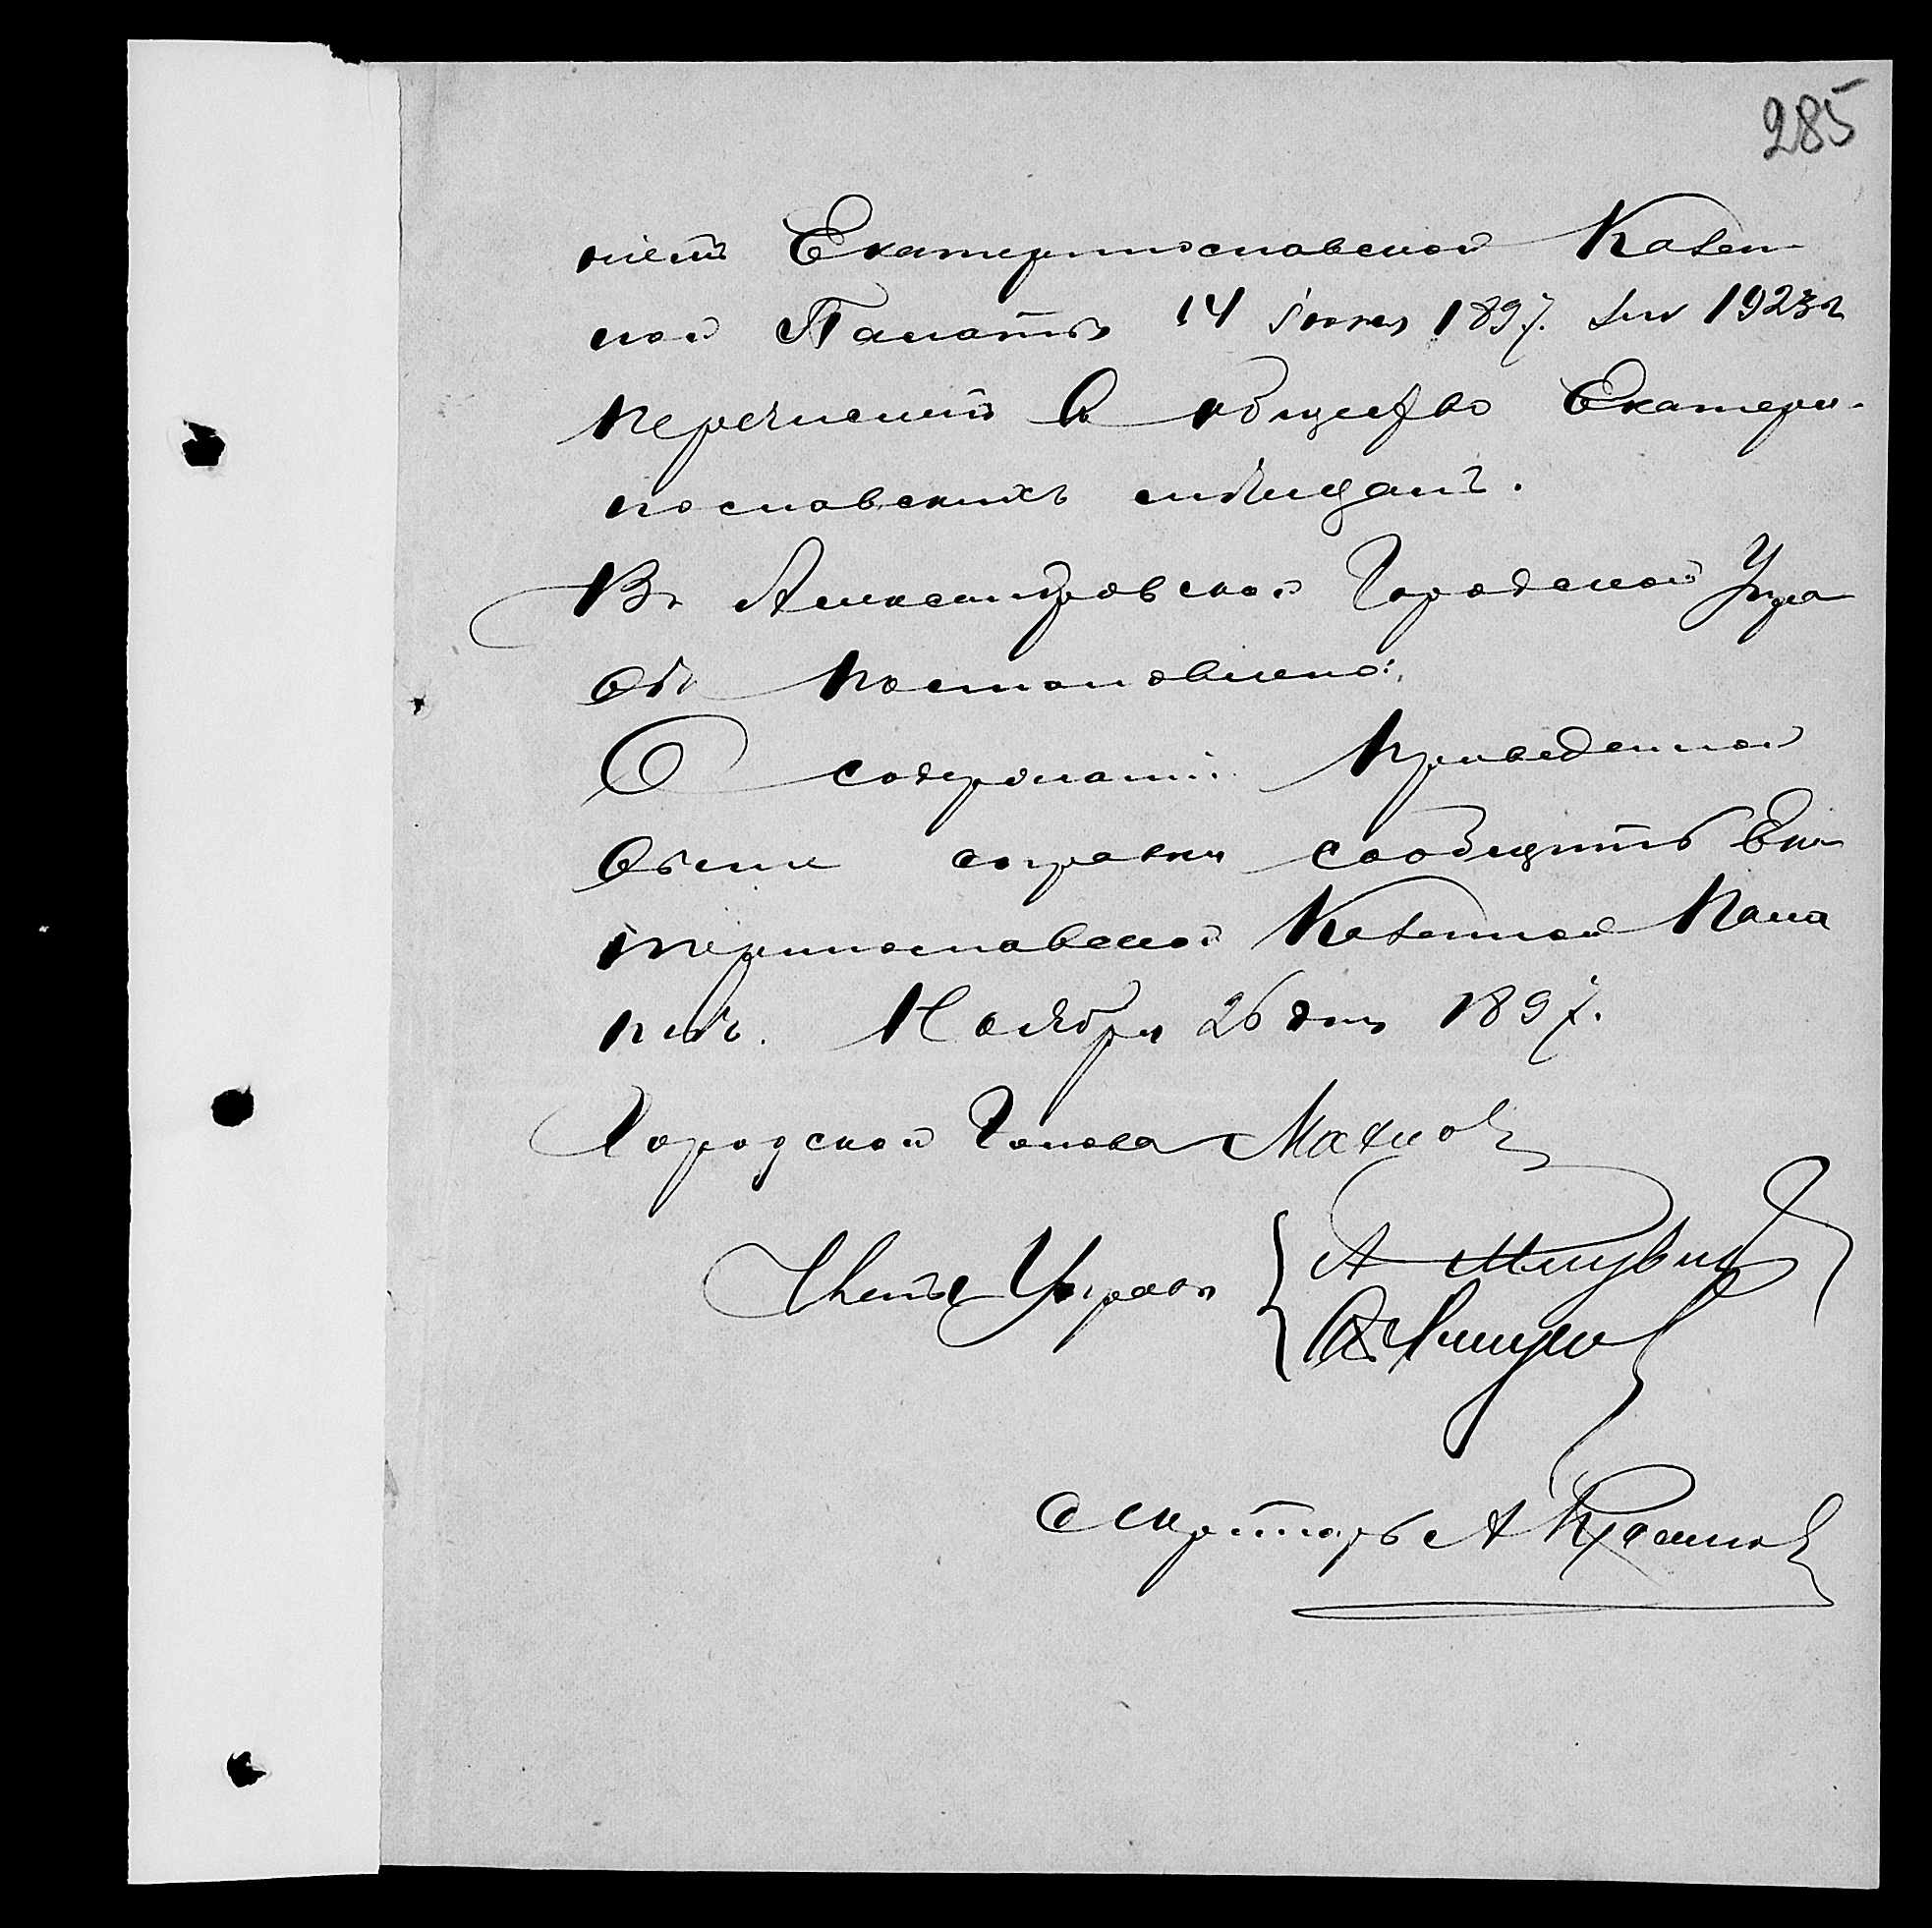 285
ніемъ Екатеринославской Казен
ной Палаты 14 іюня 1897. за 1923
перечисленъ в общество Екатери-
нославскихъ мѣщанъ.
Въ Александровской Городской Упра
вѣ постановлено:
О содержаніи приведенной
выше справки сообщить Ека
теринославской Казенной Пала
тѣ. Ноября 26 дня 1897.
Городской Голова
Члены Управы
Секретарь А